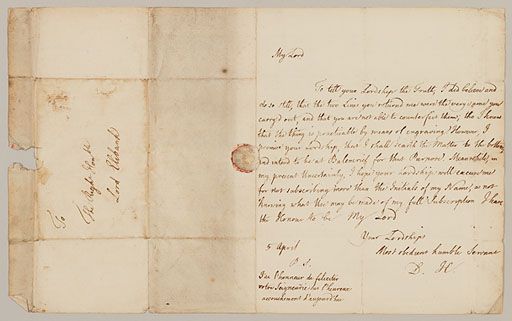 My Lord
To tell your Lordship the Truth, I did believe and
do so still, that the two Lines you returned me were the very same you
carry'd out, and that you are not able to counterfeit them, tho' I know
that the thing is practicable by means of engraving. However, I
promise your Lordship, that I shall search the Matter to the bottom
and intend to be at for this Purpose. Meanwhile, in
my present Uncertainty, I hope your Lordship will excuse me
for not subscribing more than the Initials of my Name, as not
knowing what Use may be made of my full Subscription. I have
the Honour to be My Lord
Your Lordships
Most obedient humble Servant
D. H.
5 April
P. S.
J'ai l'honneur de feliciter
votre Seigneurie sur l'heureux
accouchement d'aujourd'hui
To
The Right Honble
Lord Elibank